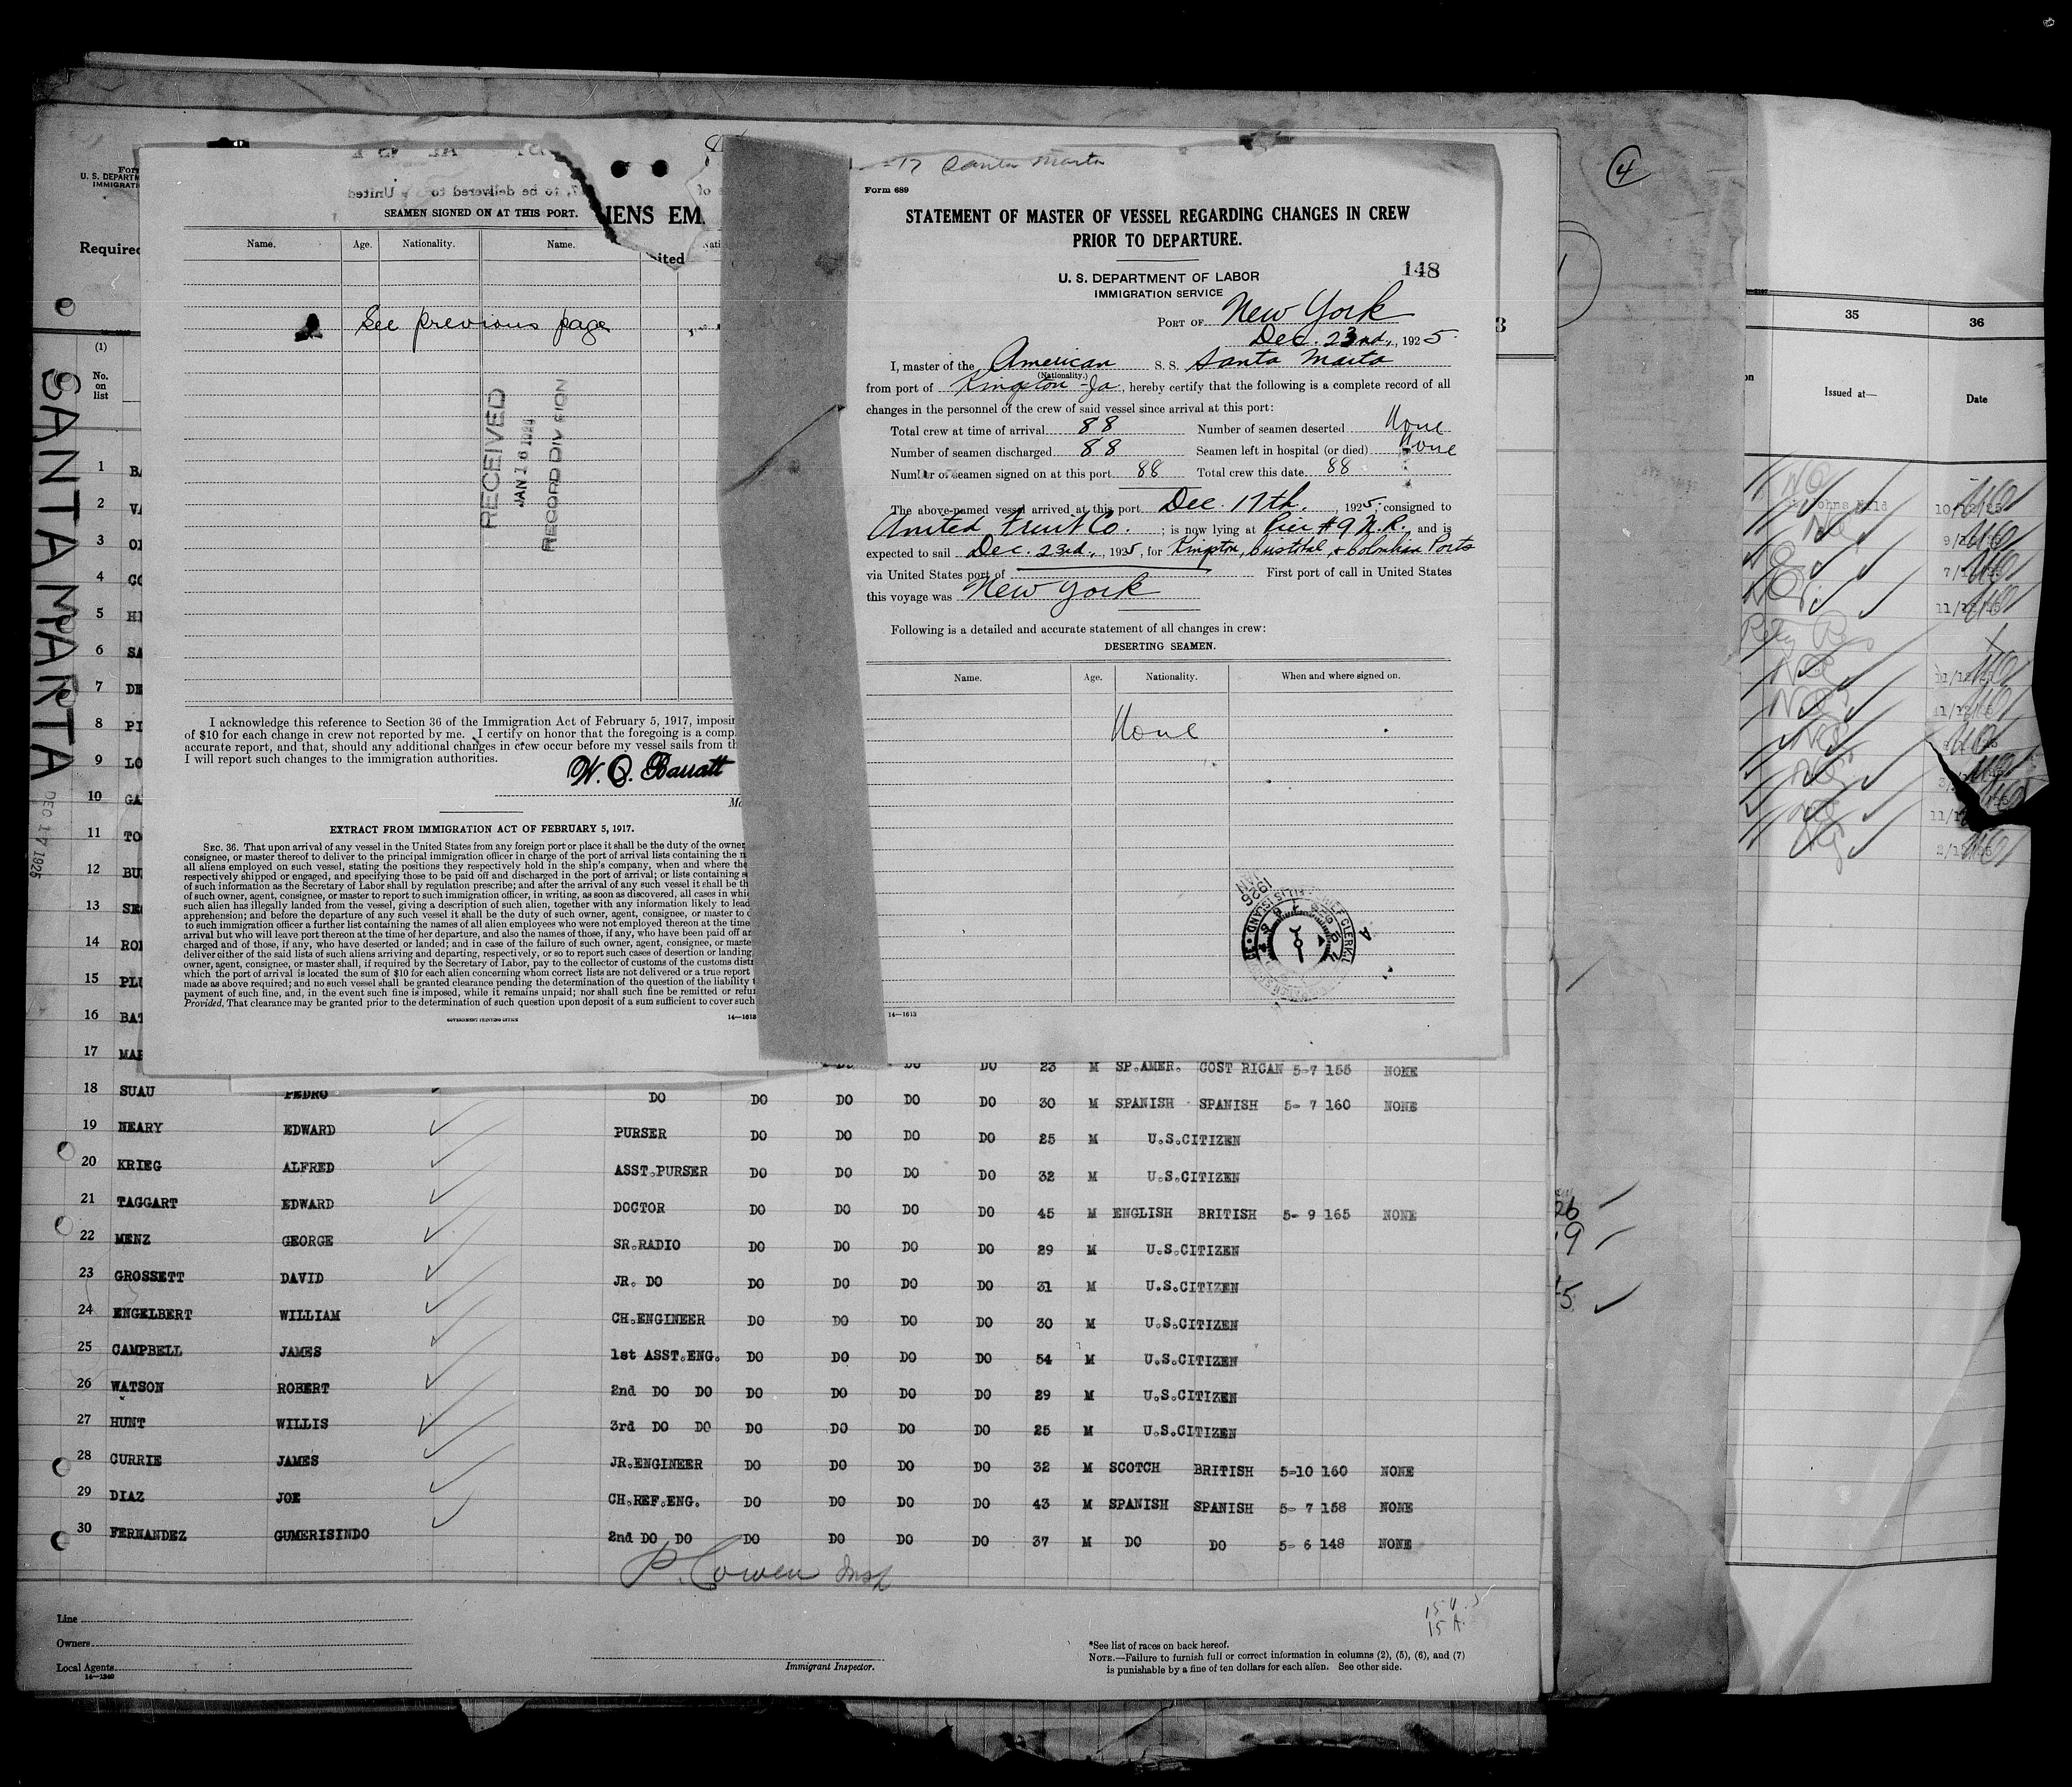 Form 689
Santa Marta
STATEMENT OF MASTER OF VESSEL REGARDING CHANGES IN CREW
PRIOR TO DEPARTURE.
U. S. DEPARTMENT OF LABOR
IMMIGRATION SERVICE
148
PORT OF New York
Dec. 23nd., 1925.
I, master of the American S. S. Santa Marta
(Nationality.)
from port of Kingston - Ja, hereby certify that the following is a complete record of all
changes in the personnel of the crew of said vessel since arrival at this port:
Total crew at time of arrival 88 Number of seamen deserted None
Number of seamen discharged 88 Seamen left in hospital (or died) None
Number of seamen signed on at this port 88 Total crew this date 88
The above-named vessel arrived at this port Dec. 17th, 1925, consigned to
United Fruit Co. ; is now lying at Pier #9 N.R. and is
expected to sail Dec. 23rd., 1925, for Kingston, Cristobal, & Colombian Ports
via United States port of First port of call in United States
this voyage was New York
Following is a detailed and accurate statement of all changes in crew:
DESERTING SEAMEN.
Name. Age. Nationality. When and where signed on.
None
14—1613
SEAMEN SIGNED ON AT THIS PORT.
Name. Age. Nationality. Name.
See previous page
RECEIVED
JAN 16
RECORD DIVISION
I acknowledge this reference to Section 36 of the Immigration Act of February 5, 1917,
of $10 for each change in crew not reported by me. I certify on honor that the foregoing is a
accurate report, and that, should any additional changes in crew occur before my vessel sails from
I will report such changes to the immigration authorities.
W. Q. Barratt
EXTRACT FROM IMMIGRATION ACT OF FEBRUARY 5, 1917.
SEC. 36. That upon arrival of any vessel in the United States from any foreign port or place it shall be the duty of the owner
consignee, or master thereof to deliver to the principal immigration officer in charge of the port of arrival lists containing the
all aliens employed on such vessel, stating the positions they respectively hold in the ship's company, when and where the
respectively shipped or engaged, and specifying those to be paid off and discharged in the port of arrival; or lists containing
of such information as the Secretary of Labor shall by regulation prescribe; and after the arrival of any such vessel it shall be
of such owner, agent, consignee, or master to report to such immigration officer, in writing, as soon as discovered, all cases in
such alien has illegally landed from the vessel, giving a description of such alien, together with any information likely to lead
apprehension; and before the departure of any such vessel it shall be the duty of such owner, agent, consignee, or master to
to such immigration officer a further list containing the names of all alien employees who were not employed thereon at the time
arrival but who will leave port thereon at the time of her departure, and also the names of those, if any, who have been paid off
charged and of those, if any, who have deserted or landed; and in case of the failure of such owner, agent, consignee, or
deliver either of the said lists of such aliens arriving and departing, respectively, or so to report such cases of desertion or landing
owner, agent, consignee, or master shall, if required by the Secretary of Labor, pay to the collector of customs of the customs
which the port of arrival is located the sum of $10 for each alien concerning whom correct lists are not delivered or a true report
made as above required; and no such vessel shall be granted clearance pending the determination of the question of the liability
payment of such fine, and, in the event such fine is imposed, while it remains unpaid; nor shall such fine be remitted or
Provided, That clearance may be granted prior to the determination of such question upon deposit of a sum sufficient to cover such
GOVERNMENT PRINTING OFFICE
14—1613
IENS EM
ited
Required
(1)
No.
on
list
SANTA MARTA
DEC 17 1925
4
35 36
Issued at— Date
1
2
3
4
5
6
7
8
9
10
11
12
13
14
15
16
17 DO 23 M SP.AMER. COST RICAN 5-7 155 NONE
18 SUAU PEDRO DO DO DO DO DO 30 M SPANISH SPANISH 5- 7 160 NONE
19 NEARY EDWARD PURSER DO DO DO DO 25 M U.S.CITIZEN
20 KRIEG ALFRED ASST.PURSER DO DO DO DO 32 M U.S.CITIZEN
21 TAGGART EDWARD DOCTOR DO DO DO DO 45 M ENGLISH BRITISH 5- 9 165 NONE
22 MENZ GEORGE SR.RADIO DO DO DO DO 29 M U.S.CITIZEN
23 GROSSETT DAVID JR. DO DO DO DO DO 31 M U.S.CITIZEN
24 ENGELBERT WILLIAM CH.ENGINEER DO DO DO DO 30 M U.S.CITIZEN
25 CAMPBELL JAMES 1st ASST.ENG. DO DO DO DO 54 M U.S.CITIZEN
26 WATSON ROBERT 2nd DO DO DO DO DO DO 29 M U.S.CITIZEN
27 HUNT WILLIS 3rd DO DO DO DO DO DO 25 M U.S.CITIZEN
28 CURRIE JAMES JR.ENGINEER DO DO DO DO 32 M SCOTCH BRITISH 5-10 160 NONE
29 DIAZ JOE CH.REF.ENG. DO DO DO DO 43 M SPANISH SPANISH 5- 7 158 NONE
30 FERNANDEZ GUMERISINDO 2nd DO DO DO DO DO DO 37 M DO DO 5- 6 148 NONE
P. Cowen Insp
Line
Owners
Local Agents
14—1240
Immigrant Inspector.
15 U.S
15 A.
*See list of races on back hereof.
NOTE.—Failure to furnish full or correct information in columns (2), (5), (6), and (7)
is punishable by a fine of ten dollars for each alien. See other side.